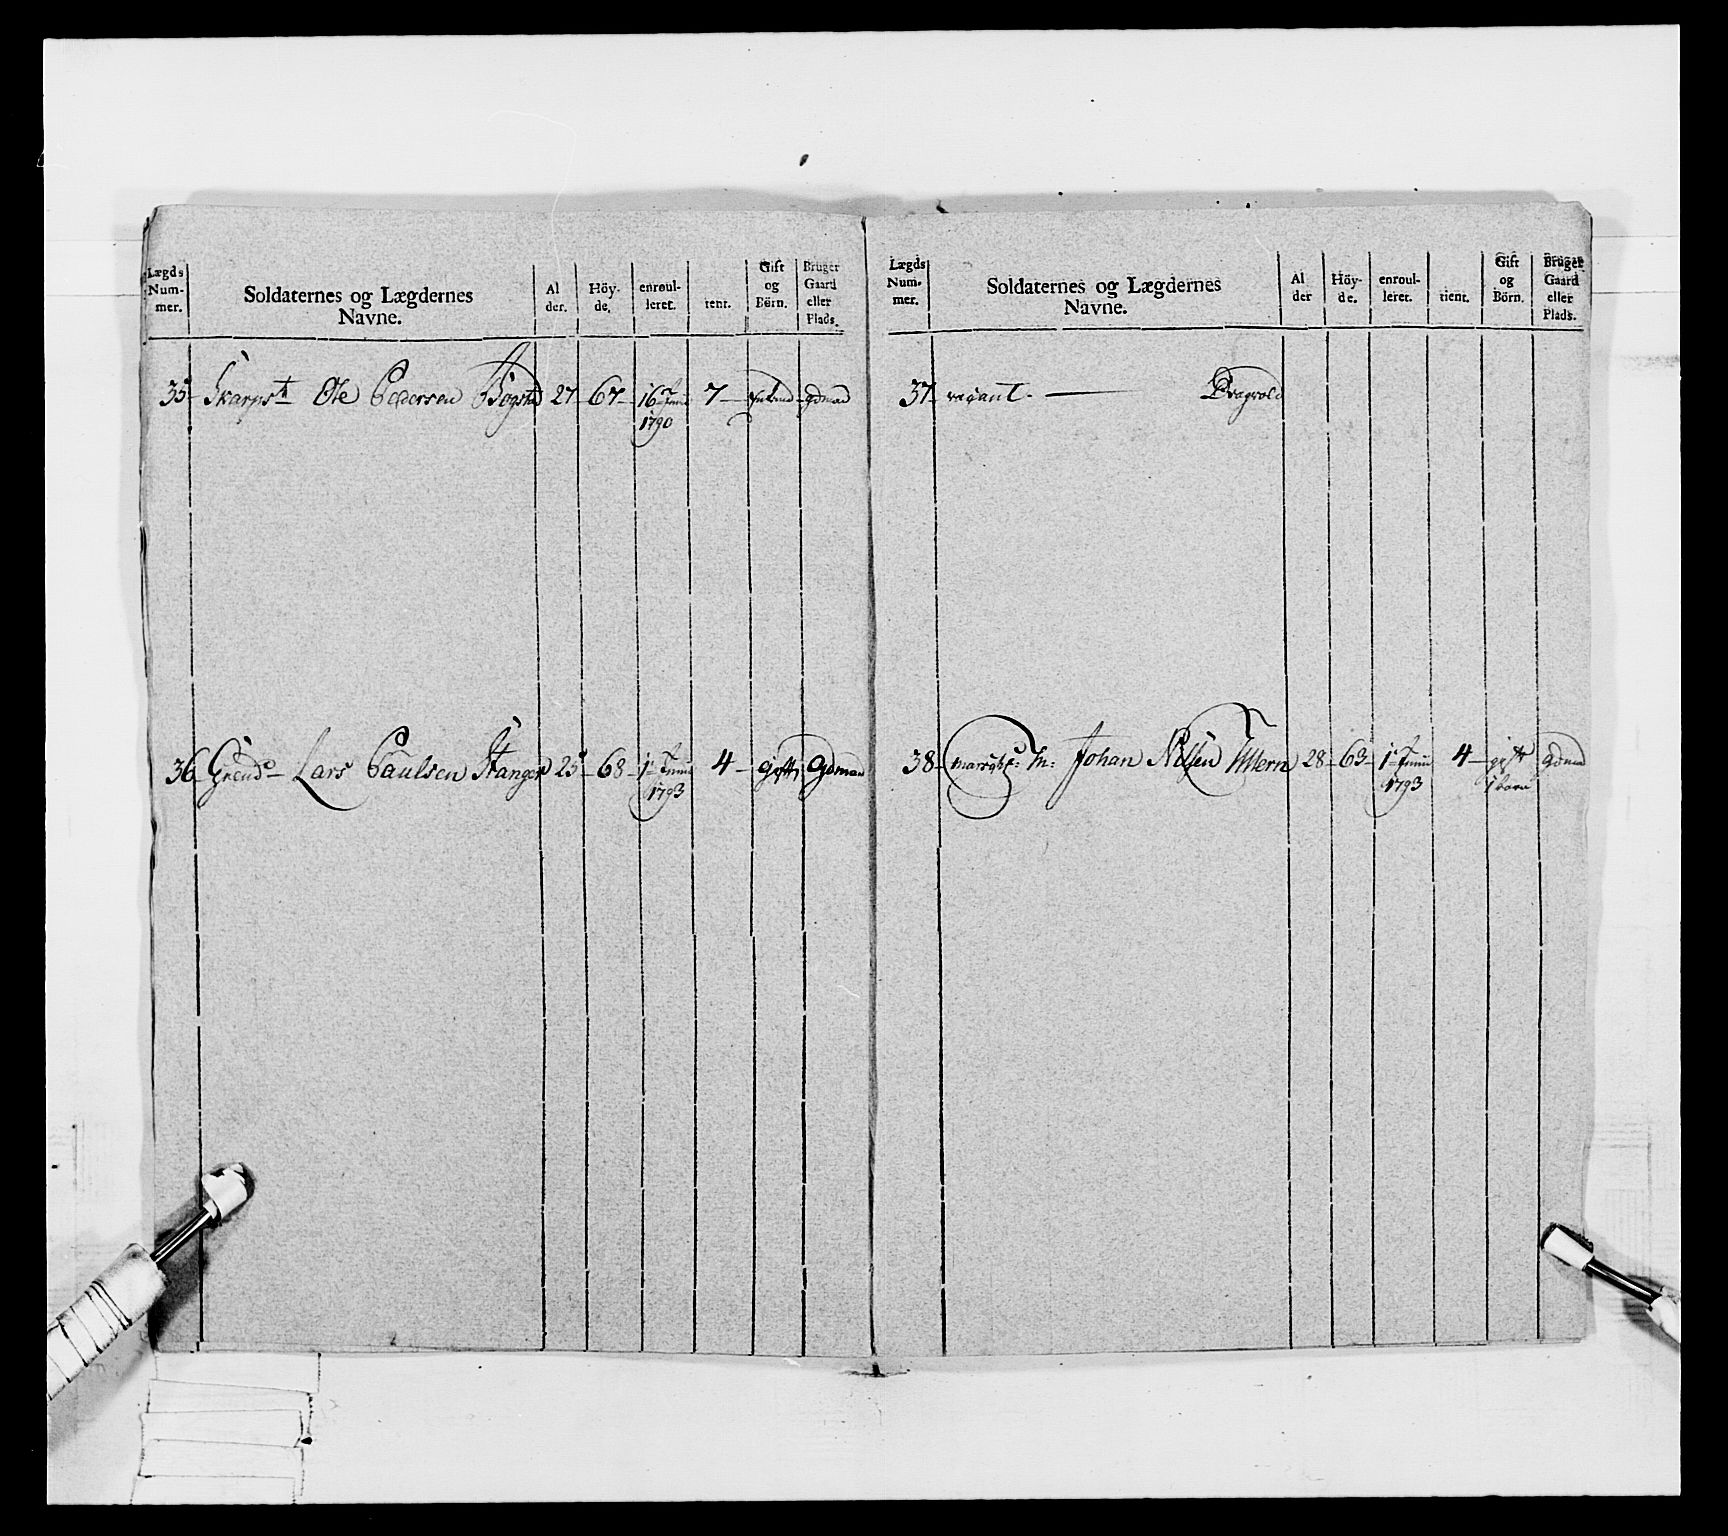 Lægds Num- mer.
Soldaternes og Lægdernes Navne.
Al der.
Höy- de.
enroul- leret.
tient.
Gift og Børn.
Bruger Gaard eller Plads.
35 Skarpst Ole Pedersen Bogstad 27 67 16 Junii 7 gdman
1790
36 Lars Paulsen Stanger 25 68 1 Junii 4 gift gdman
1793
Lægds Num- mer.
Soldaternes og Lægdernes Navne.
Al der
Höy- de.
enroul- leret.
tient.
Gift og Børn.
Bruger Gaard eller Plads.
37 vacant Dragvold
38 Johan Nilsen 28 63 1 Junii 4 gift gdman
1793 1 barn